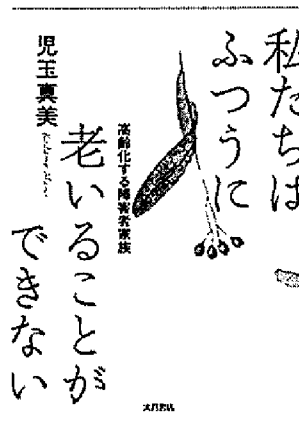 私たちは
ふつうに
老いることが
できない
高齢化する障害者家族
児玉真美
大月書店